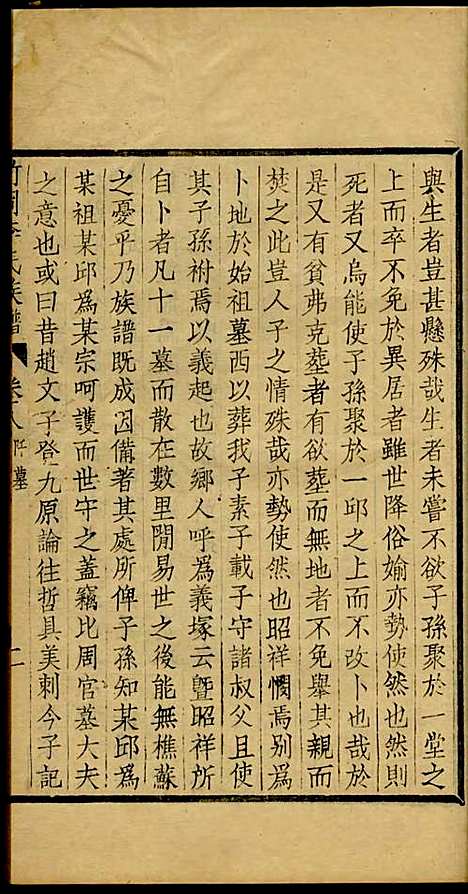 與生者豈甚懸殊哉生者未嘗不欲子孫聚於一堂之
上而卒不免於異居者雖世降俗媮亦勢使然也然則
死者又烏能使子孫聚於一邱之上而不改卜也哉於
是又有貧弗克葬者有欲葬而無地者不免舉其親而
焚之此豈人子之情殊哉亦勢使然也昭祥憫焉别爲
卜地於始祖墓西以葬我子素子載子守諸叔父且使
其子孫祔焉以義起也故鄉人呼爲義塚云曁昭祥所
自卜者凡十一墓而散在數里閒易世之後能無樵蘇
之憂乎乃族譜既成因備著其處所俾子孫知某邱爲
某祖某邱爲某宗呵護而世守之蓋竊比周官墓大夫
之意也或曰昔趙文子登九原論往哲具美刺今子記
李氏族譜 卷八 阡墓 二